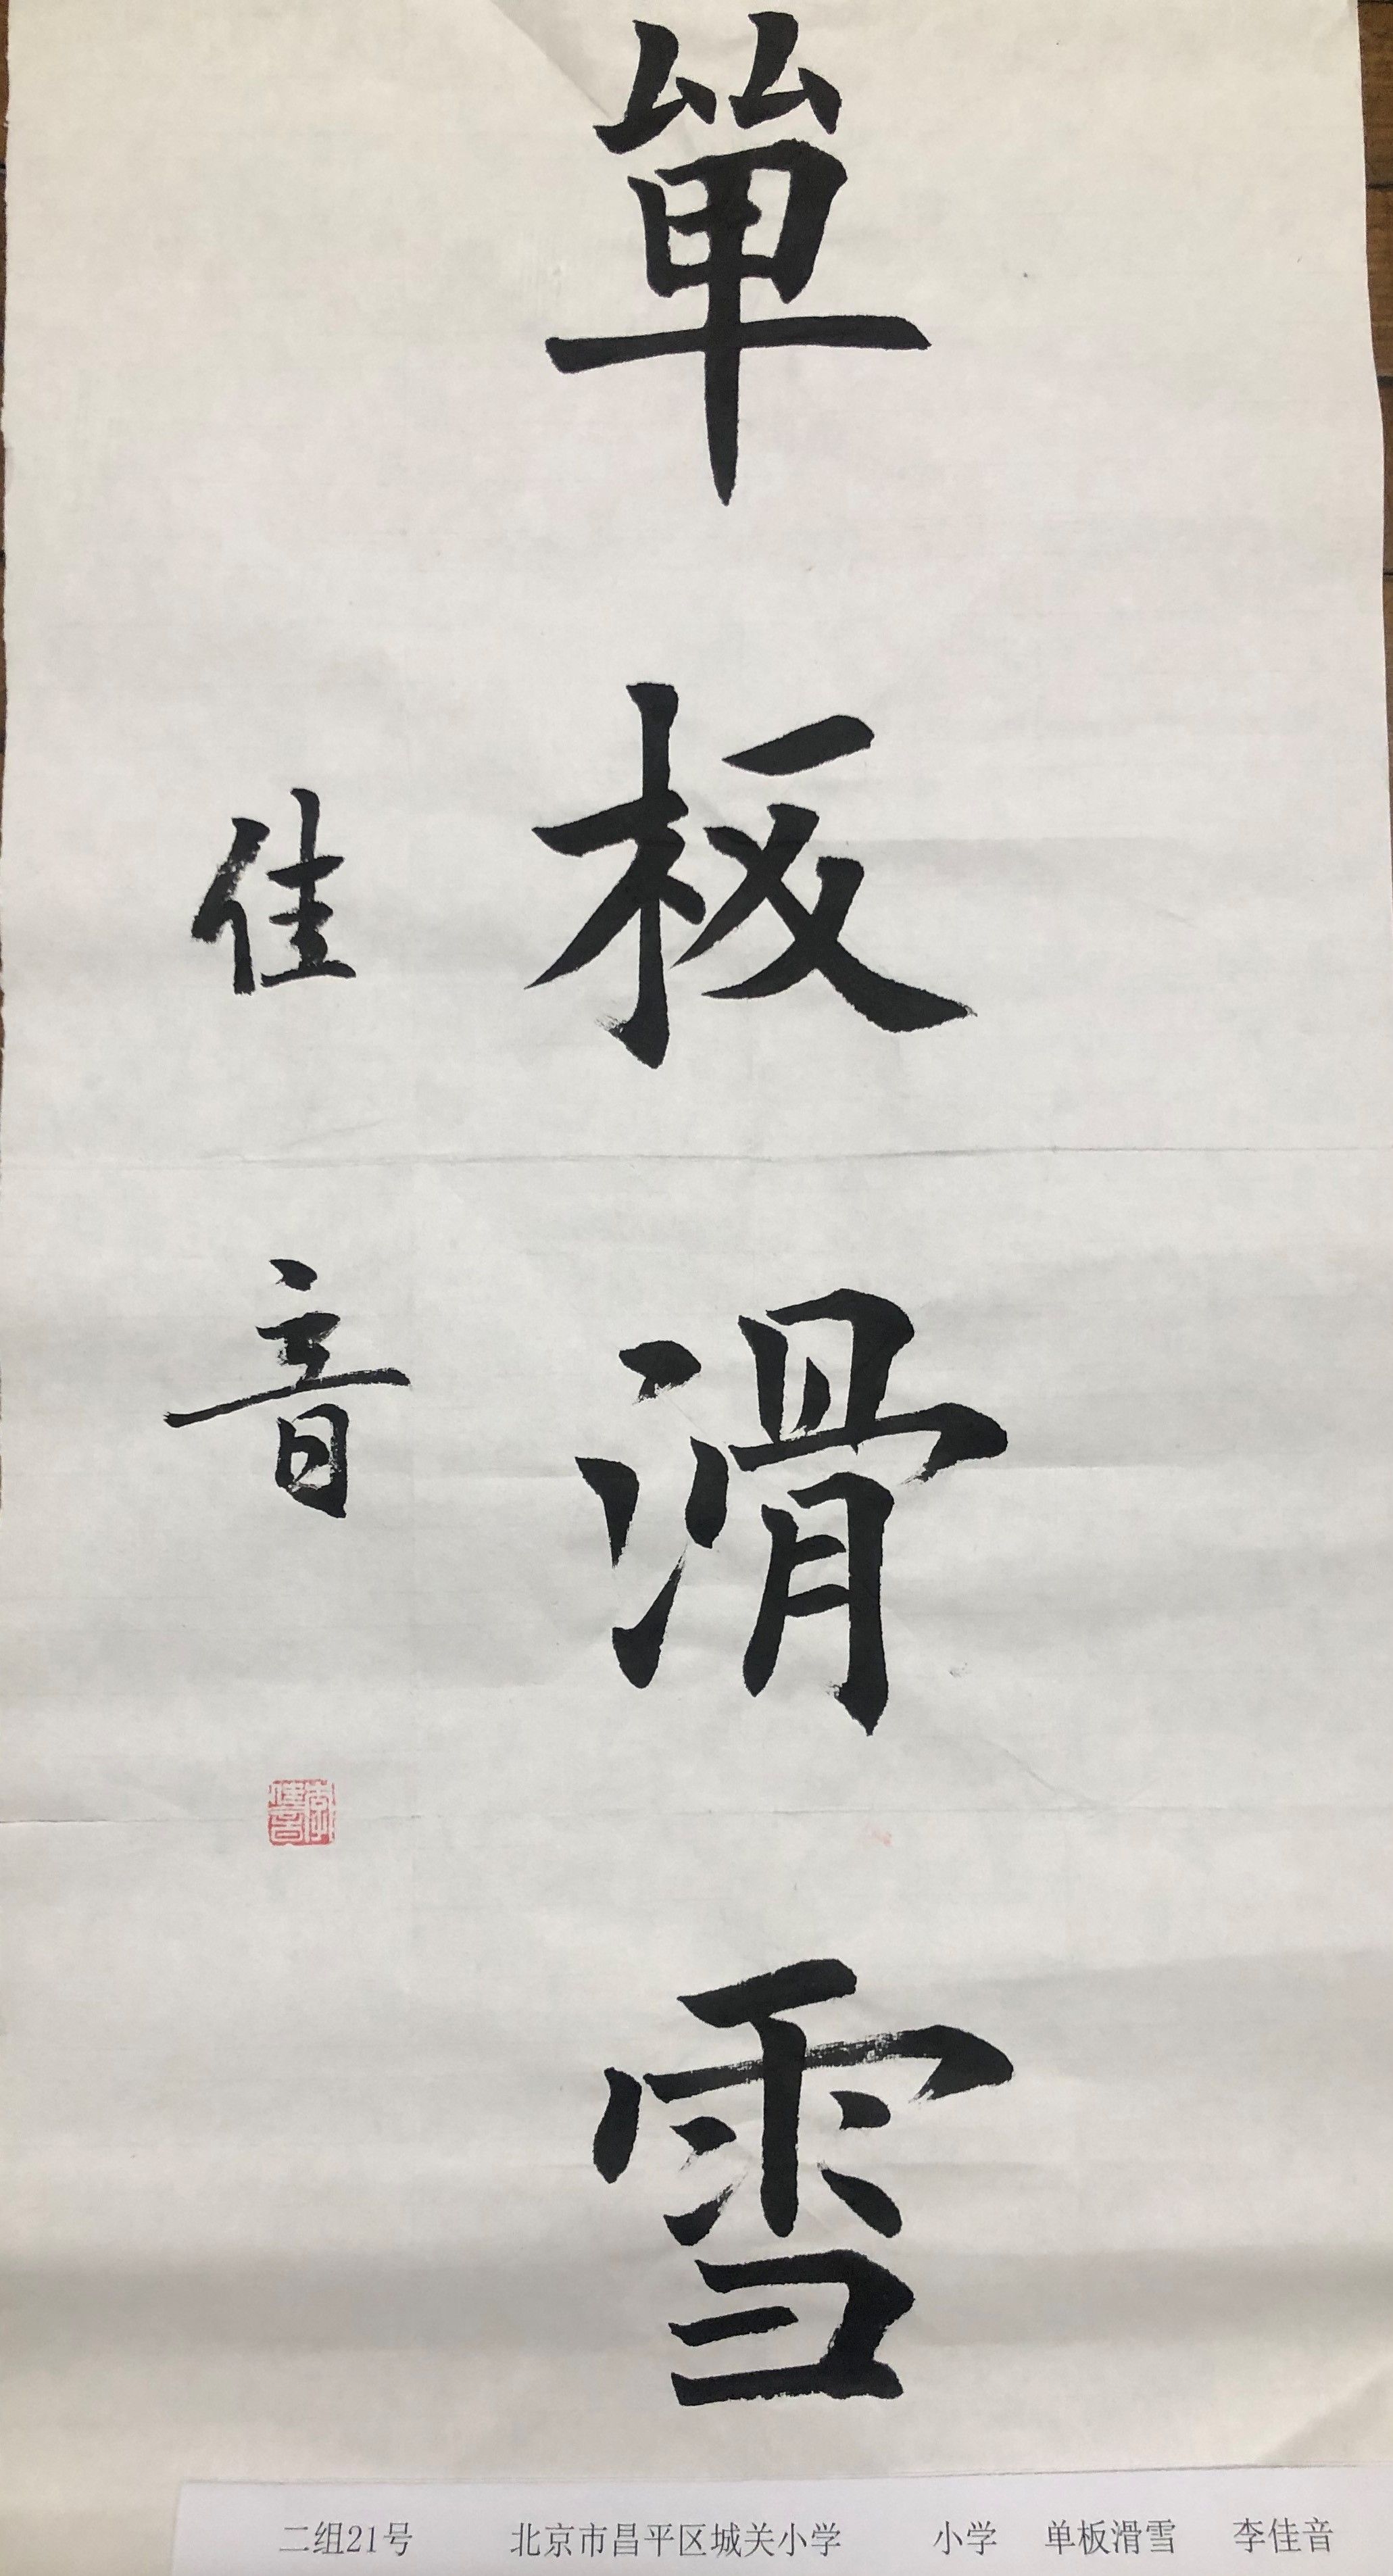 單板滑雪
佳音
李佳音
二组21号 北京市昌平区城关小学 小学 单板滑雪 李佳音